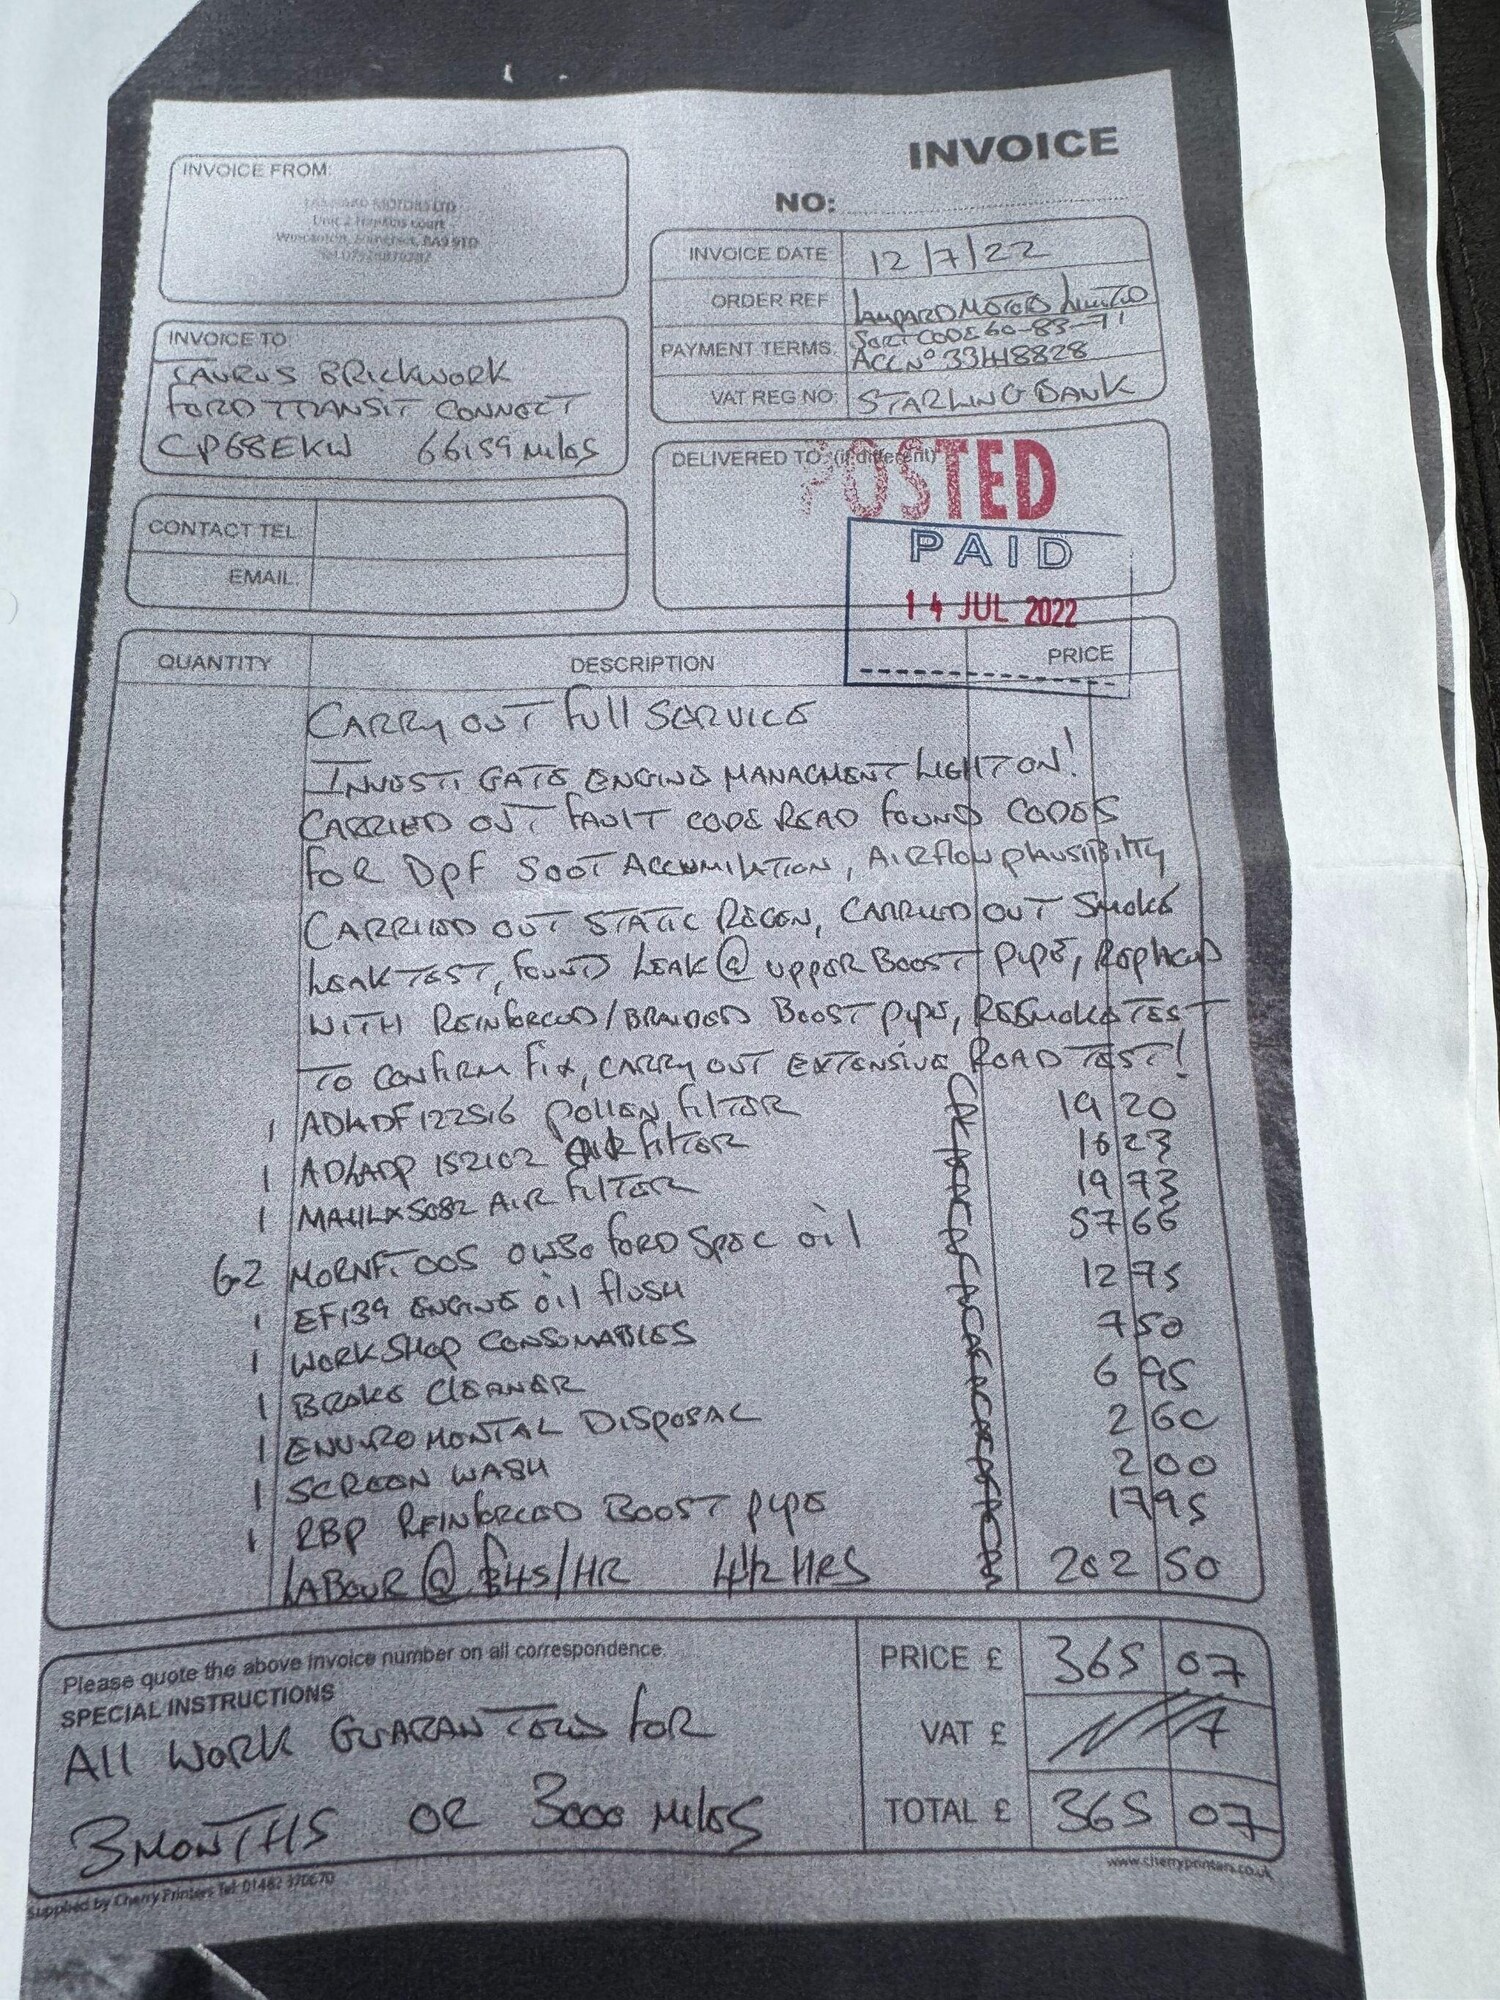 INVOICE
NO:
INVOICE FROM:
MOTORS LTD
Unit 2 court
Wincanton, Somerset, BA9 9TD
INVOICE DATE 12/7/22
ORDER REF LAMPARD MOTORS LIMITED
PAYMENT TERMS: SORT CODE 60-83-71
ACC Nº 33418828
VAT REG NO: STARLING BANK
INVOICE TO:
TAURUS BRICKWORK
FORD TRANSIT CONNECT
CP68EKW 66159 MILES
DELIVERED TO: (if different)
POSTED
PAID
14 JUL 2022
CONTACT TEL:
EMAIL:
QUANTITY DESCRIPTION PRICE
CARRY OUT FULL SERVICE
INVESTIGATE ENGINE MANAGMENT LIGHT ON!
CARRIED OUT FAULT CODE READ FOUND CODES
FOR DPF SOOT ACCUMILATION, AIRFLOW PLAUSIBILITY
CARRIED OUT STATIC REGEN, CARRIED OUT SMOKE
LEAK TEST, FOUND LEAK @ UPPER BOOST PIPE, REPLACED
WITH REINFORCED/BRAIDED BOOST PIPE, RESMOKE TEST
TO CONFIRM FIX, CARRY OUT EXTENSIVE ROAD TEST!
1 ADADF122516 POLLEN FILTER 19 20
1 152102 FILTER 16 23
1 MAHLX5082 AIR FILTER 19 73
6.2 MORNF.005 0W30 FORD SPEC OIL 57 66
1 EF139 ENGINE OIL FLUSH 12 75
1 WORKSHOP CONSUMABLES 7 50
1 BRAKE CLEANER 6 95
1 ENVIROMENTAL DISPOSAL 2 60
1 SCREEN WASH 2 00
1 RBP REINFORCED BOOST PIPE 17 95
LABOUR @ £45/HR 4 1/2 HRS 202 50
Please quote the above invoice number on all correspondence.
SPECIAL INSTRUCTIONS
ALL WORK GUARANTEED FOR
3 MONTHS OR 3000 MILES
PRICE £ 365 07
VAT £
TOTAL £ 365 07
Supplied by Cherry Printers Tel: 01482 370670
www.cherryprinters.co.uk